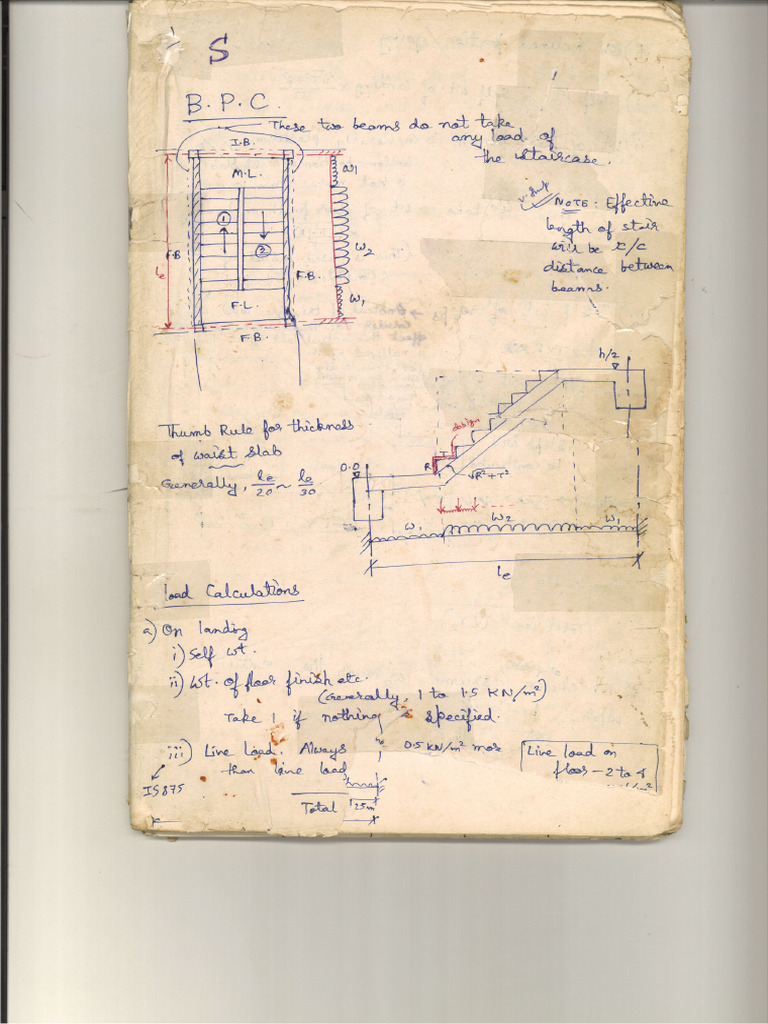 S
B.P.C.
These two beams do not take
any load of
the staircase.
I.B.
M.L.
w1
1
2
w2
F.B
F.B.
le
w1
F.L.
F.B.
v. Imp
NOTE: Effective
length of stair
will be c/c
distance between
beams.
h/2
Thumb Rule for thickness
of waist slab
Generally, le/20 ~ le/30
design
0.0
R
T
√R²+T²
w1
w2
w1
le
Load Calculations
a) On landing
i) Self wt.
ii) Wt. of floor finish etc.
(Generally, 1 to 1.5 KN/m²)
Take 1 if nothing specified.
iii) Live Load. Always 0.5 KN/m² more
than live load
IS 875
Live load on
floor – 2 to 4
Total